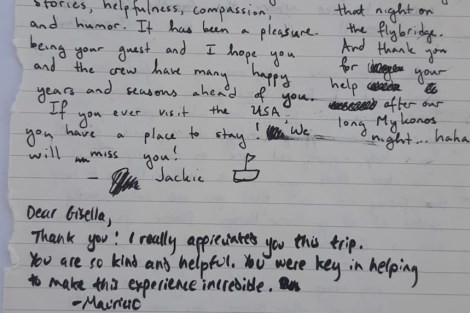 stories, helpfulness, compassion,
and humor. It has been a pleasure
being your guest and I hope you
and the crew have many happy
years and seasons ahead of you.
If you ever visit the USA,
you have a place to stay! We
will miss you!
- Jackie
that night on
the flybridge.
And thank you
for your
help
after our
long Mykonos
night... haha
Dear Gisella,
Thank you! I really appreciated you this trip.
You are so kind and helpful. You were key in helping
to make this experience incredible.